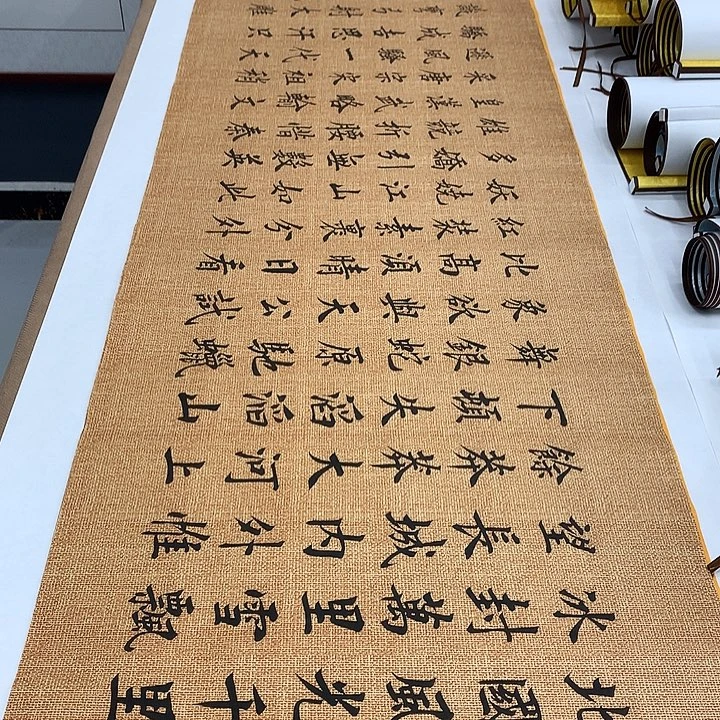 北國風光千里
冰封萬里雪飄
望長城內外惟
餘莽莽大河上
下頓失滔滔山
舞銀蛇原馳蠟
象欲與天公試
比高須晴日看
紅裝素裹分外
妖嬈江山如此
多嬌引無數英
雄競折腰惜秦
皇漢武略輸文
采唐宗宋祖稍
遜風騷一代天
驕成吉思汗只
識彎弓射大雕